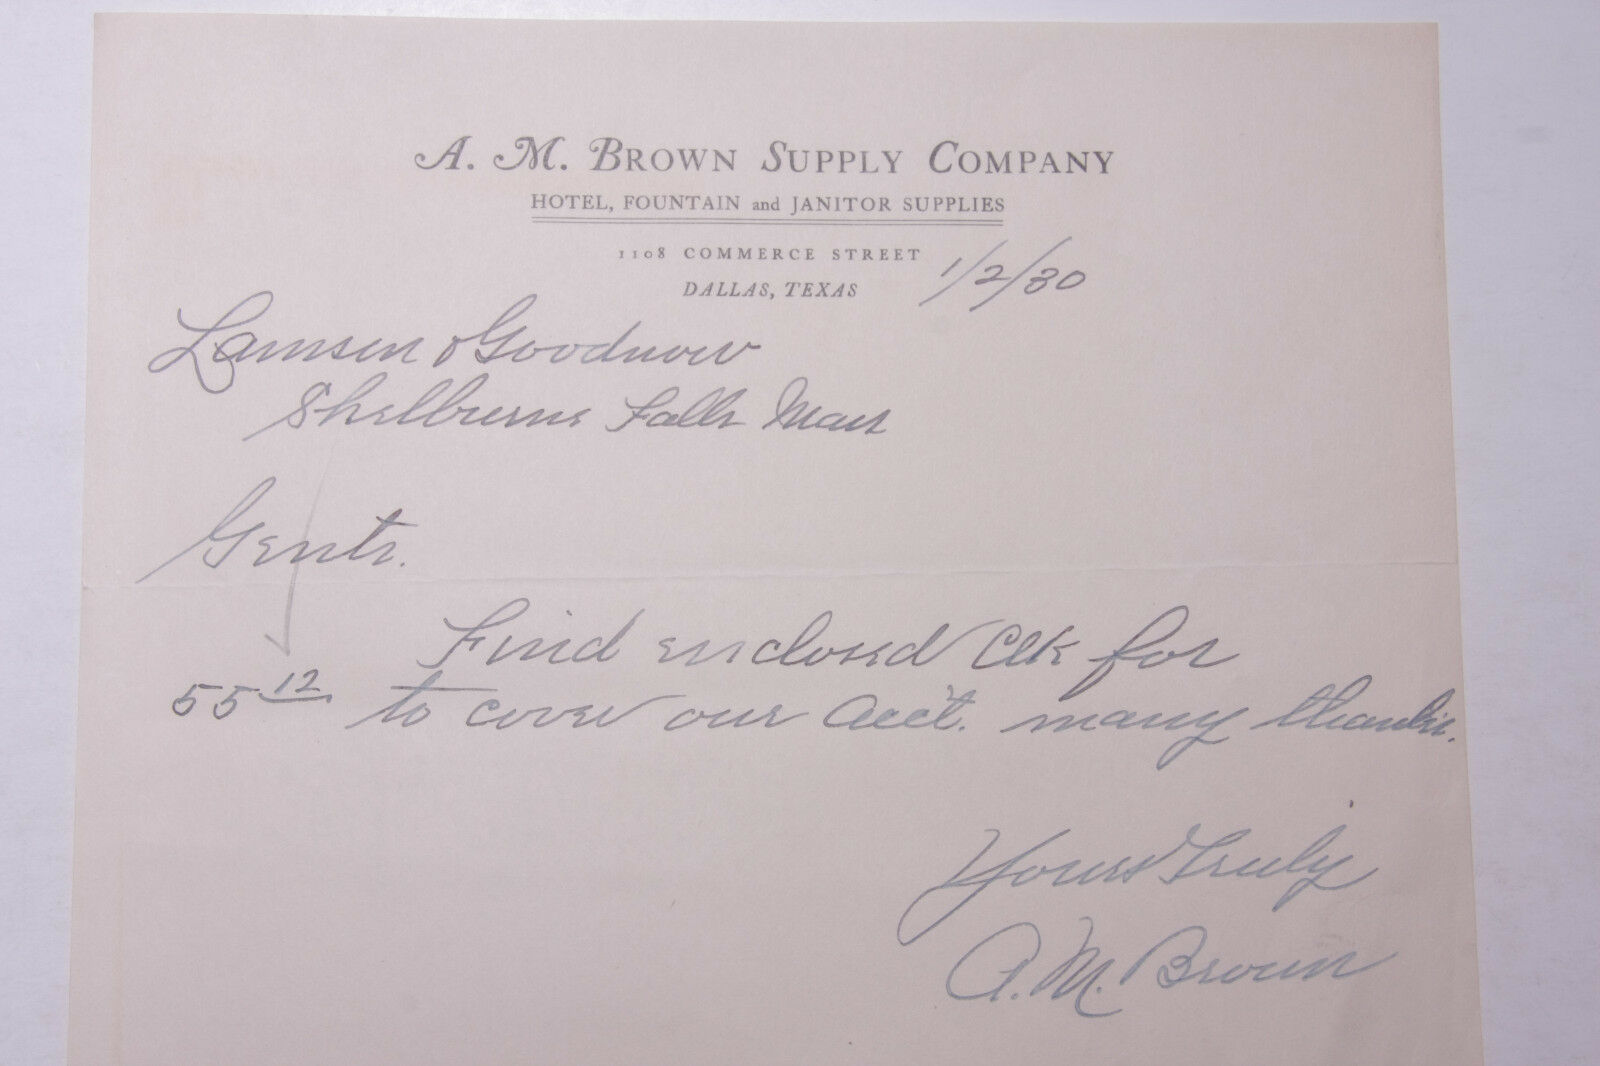 A. M. BROWN SUPPLY COMPANY
HOTEL, FOUNTAIN and JANITOR SUPPLIES
1108 COMMERCE STREET
DALLAS, TEXAS
1/2/30
Lamson & Goodnow
Shelburne Falls Mass
Gents.
Find enclosed Ck for
55 12 to cover our Acc't. many thanks.
Yours Truly
A. M. Brown